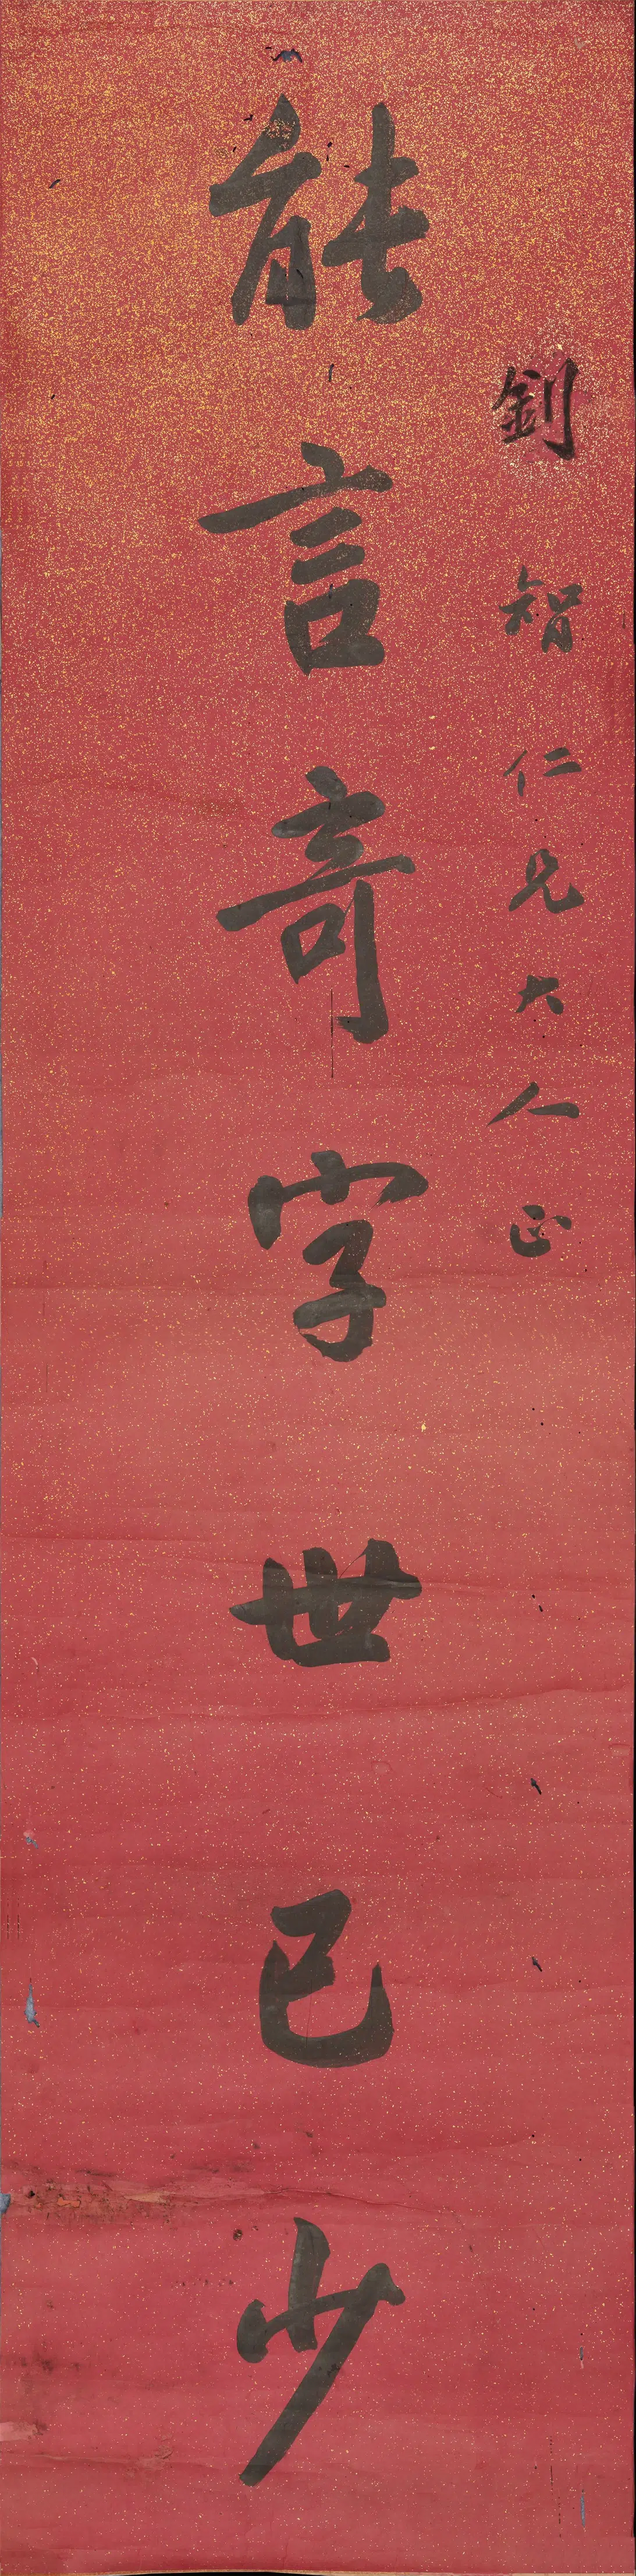 釗智仁兄大人正
能言奇字世已少